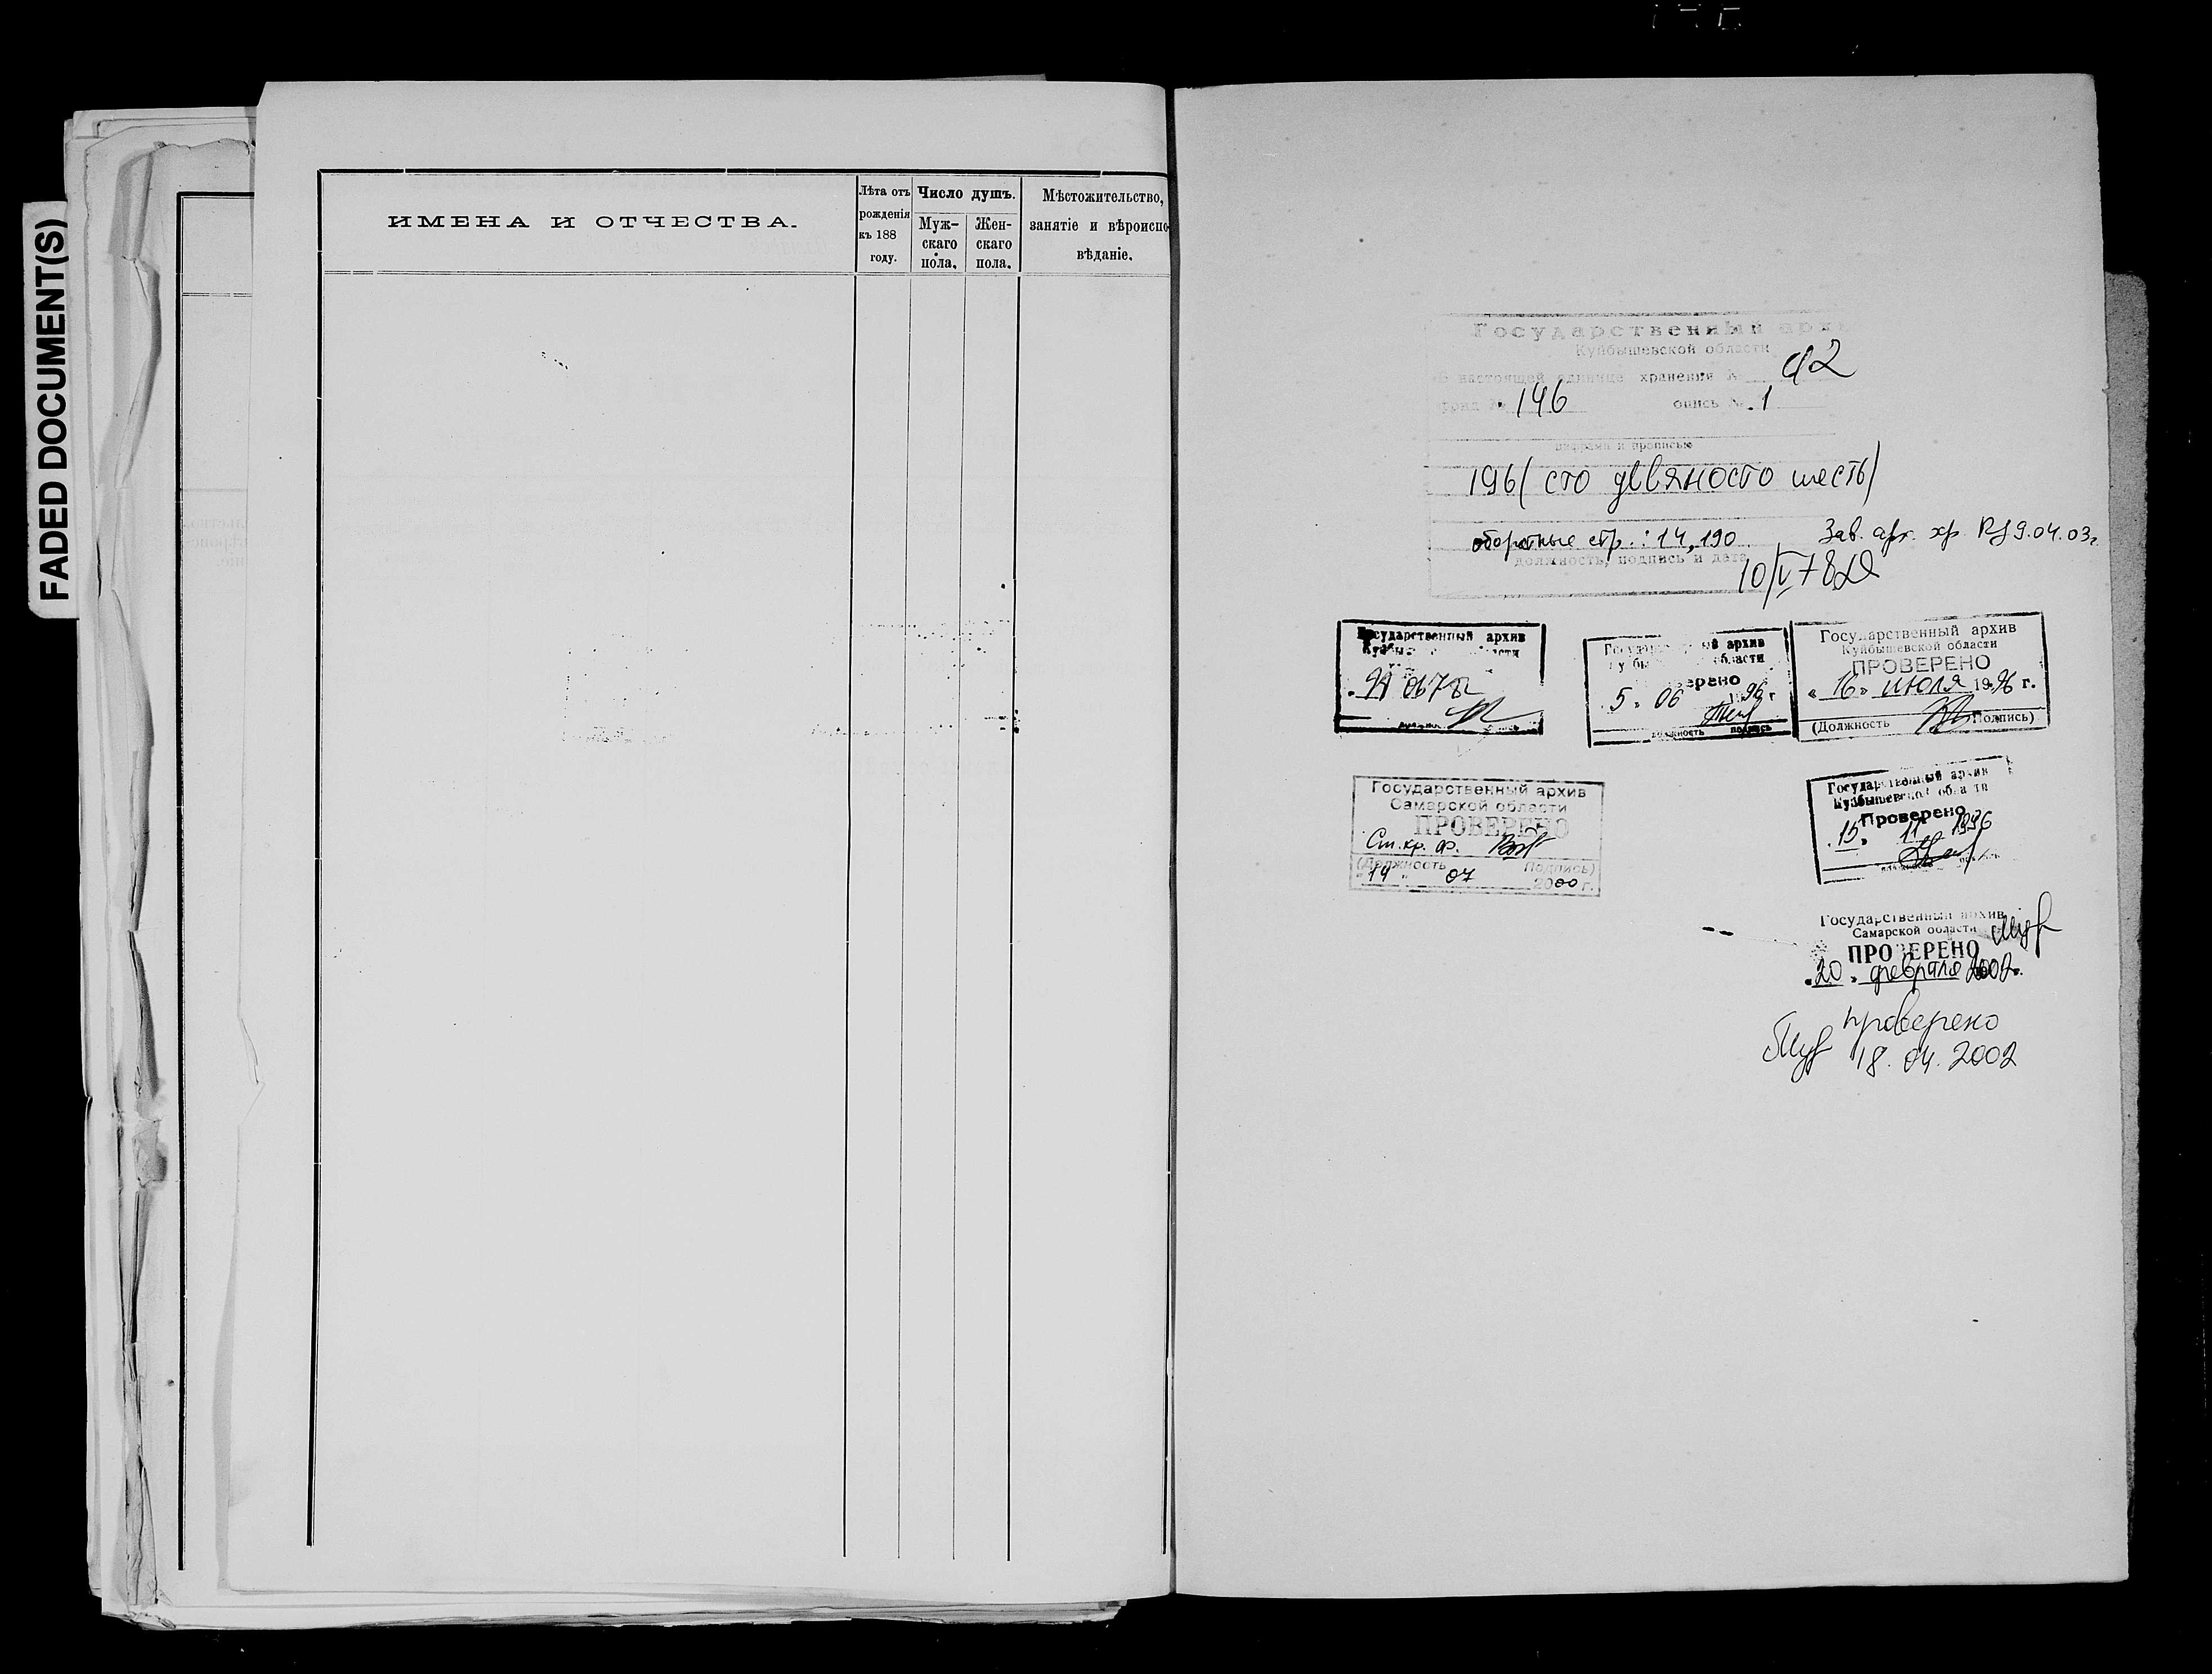 FADED DOCUMENT(S)
ИМЕНА И ОТЧЕСТВА.
Лѣта отъ
рожденія
къ 188
году.
Число душъ.
Муж-
скаго
пола.
Жен-
скаго
пола.
Мѣстожительство,
занятіе и вѣроиспо-
вѣданіе.
Государственный архи
Куйбышевской области
в настоящей единице хранения №
фонд № 146 опись № 1
цифрами и прописью
196 (сто девяносто шесть)
оборотные стр.: 14, 190
Зав. арх. хр. 9.04.03г.
должность, подпись и дата
10/V 78
Государственный архив
Государственный архив
области
5 06 1996 г
должность подпись
Государственный архив
Куйбышевской области
ПРОВЕРЕНО
« 16 » июля 1996 г.
(Должность Подпись)
Государственный архив
Самарской области
ПРОВЕРЕНО
Ст. хр. ф.
(Должность Подпись)
"19" 07 2000 г.
Государственный архив
Куйбышевской области
Проверено
15 11 1996
Государственный архив
Самарской области
ПРОВЕРЕНО
"20" февраля 2002г.
проверено
18.04.2002